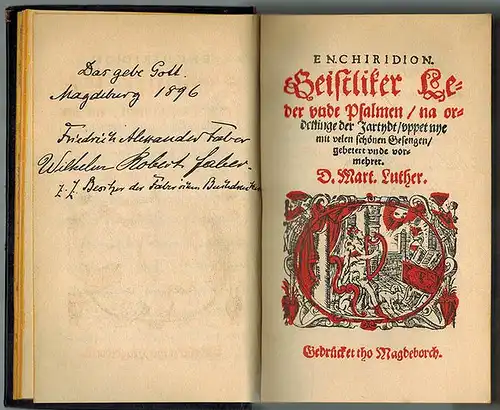 Das gebe Gott.
Magdeburg 1896
Friedrich Alexander Faber
Wilhelm Robert Faber
z. Z. Besitzer der Faber'schen Buchdruckerei
ENCHIRIDION.
Geistliker Le-
der vnde Psalmen / na or-
deninge der Jartydt / vppet nye
mit velen schönen Gesengen /
gebetert vnde vor-
mehret.
D. Mart. Luther.
Gedrücket tho Magdeborch.